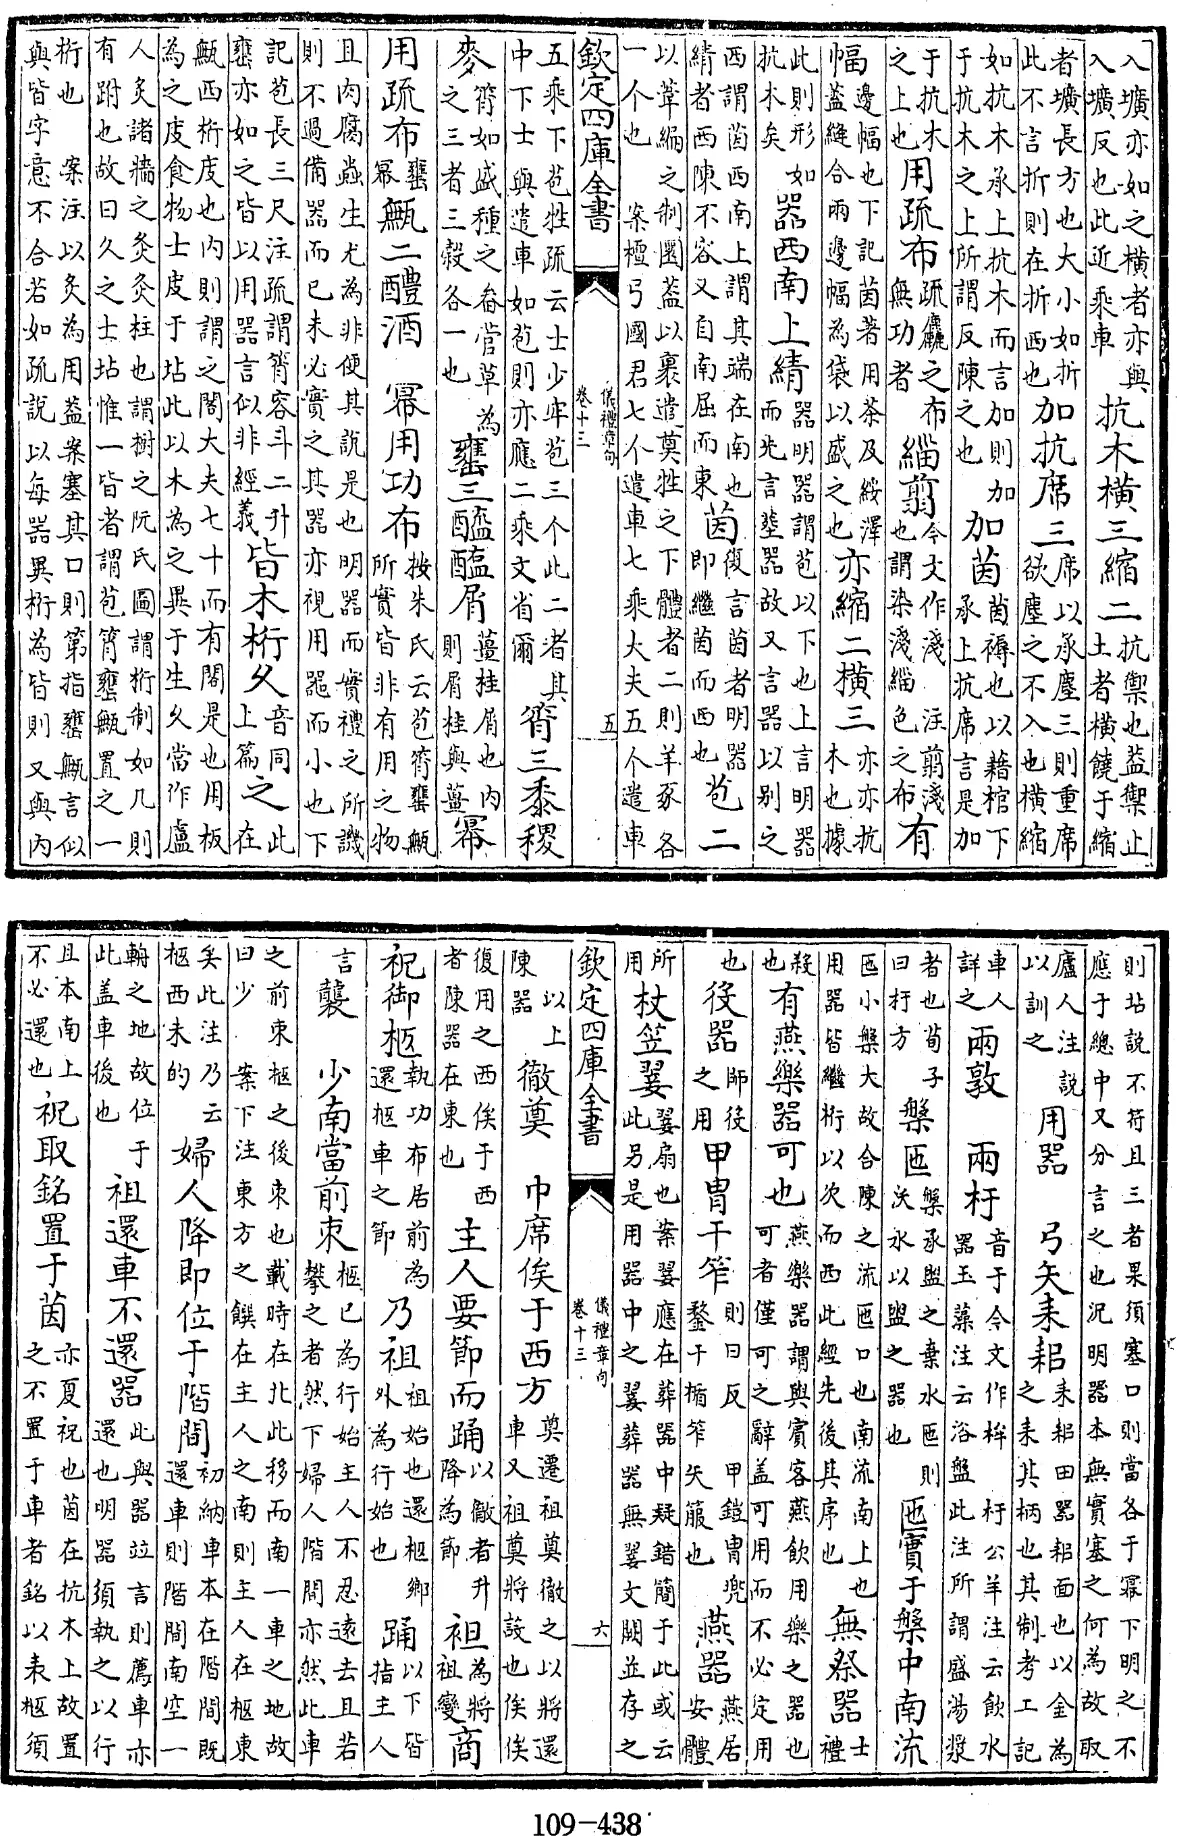 入壙亦如之橫者亦與入壙反也此近乘車抗木橫三縮二抗禦也蓋禦止土者橫饒于縮
者壙長方也大小如折此不言折則在折西也加抗席三席以承塵三則重席欲塵之不入也橫縮
如抗木承上抗木而言加則加于抗木之上所謂反陳之也加茵茵褥也以藉棺下承上抗席言是加
于抗木之上也用疏布疏麤之布無功者緇翦今文作淺 注翦淺也謂染淺緇色之布有
幅邊幅也下記茵著用荼及綏澤蓋縫合兩邊幅為袋以盛之也亦縮二橫三亦亦抗木也據
此則形如抗木矣器西南上綪器明器謂苞以下也上言明器而先言塟器故又言器以別之
西謂茵西南上謂其端在南也綪者西陳不容又自南屈而東茵復言茵者明器即繼茵而西也苞二
以葦編之制圜蓋以裹遣奠牲之下體者二則羊豕各一个也 案檀弓國君七个遣車七乘大夫五个遣車
欽定四庫全書 儀禮章句 卷十三 五
五乘下苞牲疏云士少牢苞三个此二者其中下士與遣車如苞則亦應二乘文省爾筲三黍稷
麥筲如盛種之畚當草為之三者三穀各一也甕三醯醢屑薑桂屑也內則屑桂與薑冪
用疏布甕冪甒二醴酒 冪用功布按朱氏云苞筲甕甒所實皆非有用之物
且肉腐蟲生尤為非便其說是也明器而實禮之所譏則不過備器而已未必實之其器亦視用器而小也下
記苞長三尺注疏謂筲容斗二升甕亦如之皆以用器言似非經義皆木桁久音同上篇之此在
甒西桁庋也內則謂之閣大夫七十而有閣是也用板為之庋食物士庋于坫此以木為之異于生久當作盧
人灸諸牆之灸灸柱也謂樹之阮氏圖謂桁制如几則有跗也故曰久之士坫惟一皆者謂苞筲甕甒置之一
桁也 案注以灸為用蓋案塞其口則第指甕甒言似與皆字意不合若如疏說以每器異桁為皆則又與內
則坫說不符且三者果須塞口則當各于冪下明之不應于總中又分言之也況明器本無實塞之何為故取
廬人注說以訓之用器 弓矢耒耜耒耜田器耜面也以金為之耒其柄也其制考工記
車人詳之兩敦 兩杅音于今文作桙 杅公羊注云飲水器玉藻注云浴盤此注所謂盛湯漿
者也荀子曰杅方槃匜槃承盥之棄水匜則沃水以盥之器也匜實于槃中南流
匜小槃大故合陳之流匜口也南流南上也用器皆繼桁以次而西此經先後其序也無祭器士禮
殺也有燕樂器可也燕樂器謂與賓客燕飲用樂之器也可者僅可之辭蓋可用而不必定用
也役器師役之用甲冑干笮則曰反 甲鎧冑兜鍪干楯笮矢箙也燕器燕居安體
所用杖笠翣翣扇也案翣應在葬器中疑錯簡于此或云此另是用器中之翣葬器無翣文闕並存之
欽定四庫全書 儀禮章句 卷十三 六
以上陳器徹奠 巾席俟于西方奠遷祖奠徹之以將還車又祖奠將設也俟俟
復用之西俟于西者陳器在東也主人要節而踊以徹者升降為節袒為將祖變商
祝御柩執功布居前為還柩車之節乃祖祖始也還柩鄉外為行始也踊以下皆指主人
言襲 少南當前束柩已為行始主人不忍遠去且若攀之者然下婦人階間亦然此車
之前束柩之後束也載時在北此移而南一車之地故曰少 案下注東方之饌在主人之南則主人在柩東
矣此注乃云柩西未的婦人降即位于階間初納車本在階間既還車則階間南空一
輈之地故位于此盖車後也祖還車不還器此與器竝言則薦車亦還也明器須執之以行
且本南上不必還也祝取銘置于茵亦夏祝也茵在抗木上故置之不置于車者銘以表柩須
109-438